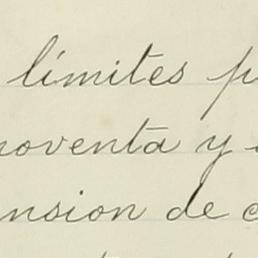 límites p
noventa y
nsion de c